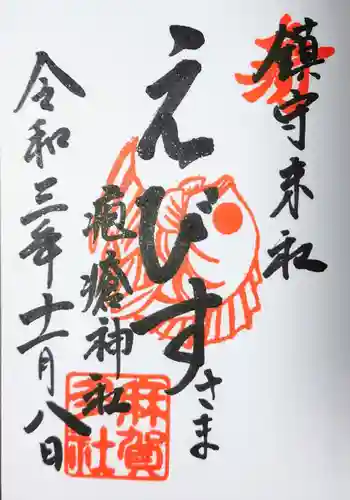 鎮守末社
えびすさま
疱瘡神社
令和三年十一月八日